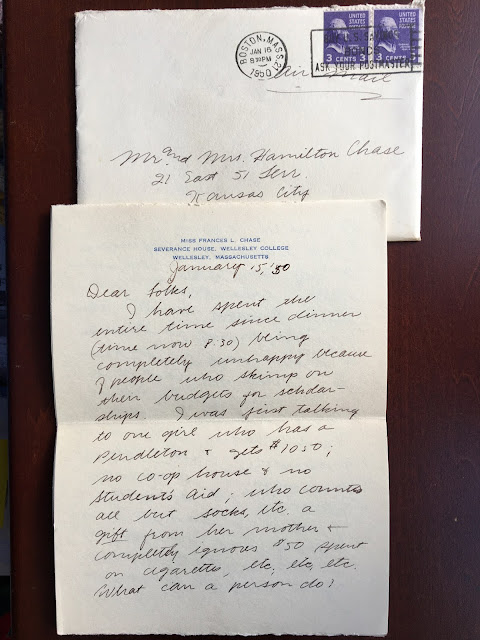 BOSTON, MASS.
JAN 16
8 PM
1950
UNITED STATES POSTAGE
UNITED STATES POSTAGE
3 CENTS 3
3 CENTS 3
U.S. SAVINGS
BONDS
ASK YOUR POSTMASTER
Air Mail
Mr and Mrs. Hamilton Chase
21 East 51 Terr.
Kansas City
MISS FRANCES L. CHASE
SEVERANCE HOUSE, WELLESLEY COLLEGE
WELLESLEY, MASSACHUSETTS
January 15, '50
Dear Folks,
I have spent the
entire time since dinner
(time now 8:30) being
completely unhappy because
of people who skimp on
their budgets for scholar-
ships. I was first talking
to one girl who has a
Pendleton & gets $1050;
no co-op house & no
students aid; who counts
all but socks, etc. a
gift from her mother &
completly ignores $50 spent
on cigarettes, etc, etc, etc.
What can a person do?